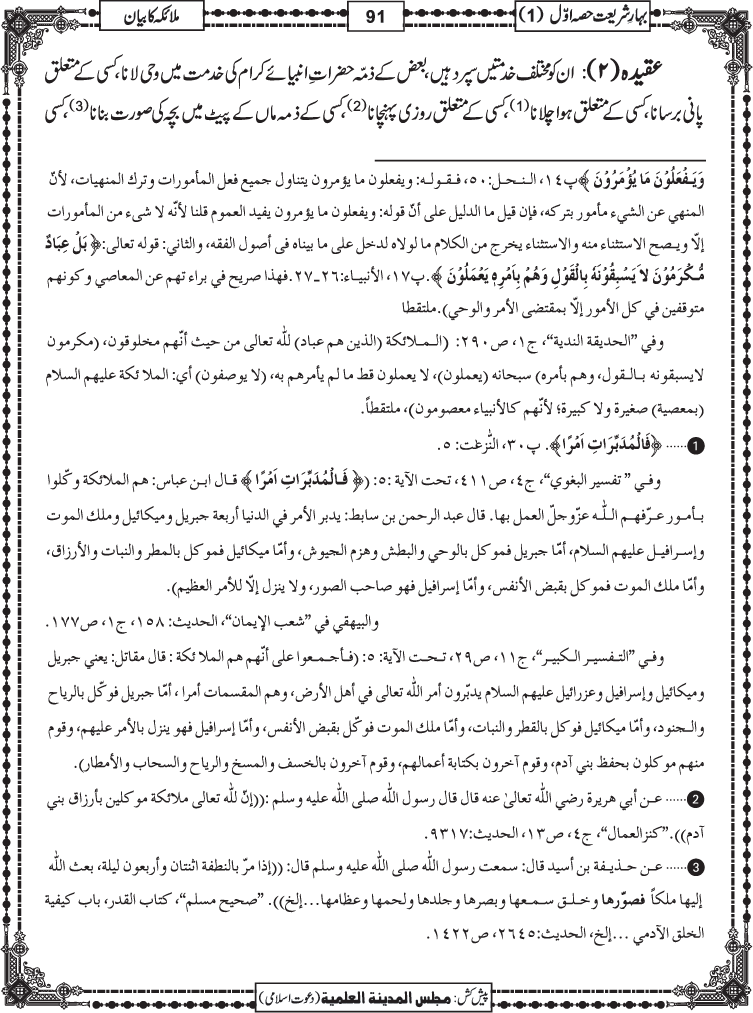 بہارِ شریعت حصہ اوّل (1)
91
ملائکہ کا بیان
عقیدہ (۲): ان کو مختلف خدمتیں سپرد ہیں، بعض کے ذمہ حضراتِ انبیائے کرام کی خدمت میں وحی لانا، کسی کے متعلق
پانی برسانا، کسی کے متعلق ہوا چلانا(1)، کسی کے متعلق روزی پہنچانا(2)، کسی کے ذمہ ماں کے پیٹ میں بچہ کی صورت بنانا(3)، کسی
وَيَفْعَلُوْنَ مَا يُؤْمَرُوْنَ﴾ پ١٤، النـحـل: ٥٠، فـقـولـه: ويفعلون ما يؤمرون يتناول جميع فعل المأمورات وترك المنهيات، لأنّ
المنهي عن الشيء مأمور بتركه، فإن قيل ما الدليل على أنّ قوله: ويفعلون ما يؤمرون يفيد العموم قلنا لأنّه لا شىء من المأمورات
إلّا ويـصح الاستثناء منه والاستثناء يخرج من الكلام ما لولاه لدخل على ما بيناه فى أصول الفقه، والثاني: قوله تعالى: ﴿بَلْ عِبَادٌ
مُّكْرَمُوْنَ لاَ يَسْبِقُوْنَهٗ بِالْقَوْلِ وَهُمْ بِاَمْرِهٖ يَعْمَلُوْنَ﴾. پ١٧، الأنبياء: ٢٦-٢٧. فهذا صريح في براء تهم عن المعاصي وكونهم
متوقفين في كل الأمور إلّا بمقتضى الأمر والوحي). ملتقطا
وفي ”الحديقة الندية“، ج١، ص٢٩٠: (الـمـلائكة (الذين هم عباد) لله تعالى من حيث أنّهم مخلوقون، (مكرمون
لايسبقونه بـالـقول، وهم بأمره) سبحانه (يعملون)، لا يعملون قط ما لم يأمرهم به، (لا يوصفون) أي: الملائكة عليهم السلام
(بمعصية) صغيرة ولا كبيرة؛ لأنّهم كالأنبياء معصومون)، ملتقطاً.
1 ...... ﴿فَالْمُدَبِّرَاتِ اَمْرًا﴾. پ٣٠، النّٰزعٰت: ٥.
وفـي ”تفسير البغوي“، ج٤، ص٤١١، تحت الآية: ٥: (﴿فَالْمُدَبِّرَاتِ اَمْرًا﴾ قـال ابـن عباس: هم الملائكة وكّلوا
بـأمـور عـرّفهـم اللّٰـه عزّوجلّ العمل بها. قال عبد الرحمن بن سابط: يدبر الأمر في الدنيا أربعة جبريل وميكائيل وملك الموت
وإسـرافيـل عليهم السلام، أمّا جبريل فموكل بالوحي والبطش وهزم الجيوش، وأمّا ميكائيل فموكل بالمطر والنبات والأرزاق،
وأمّا ملك الموت فموكل بقبض الأنفس، وأمّا إسرافيل فهو صاحب الصور، ولا ينزل إلّا للأمر العظيم).
والبيهقي في ”شعب الإيمان“، الحديث: ١٥٨، ج١، ص١٧٧.
وفـي ”التـفسيـر الـكبيـر“، ج١١، ص٢٩، تـحـت الآية: ٥: (فـأجـمعوا على أنّهم هم الملائكة: قال مقاتل: يعني جبريل
وميكائيل وإسرافيل وعزرائيل عليهم السلام يدبّرون أمر الله تعالى في أهل الأرض، وهم المقسمات أمرا، أمّا جبريل فوكّل بالرياح
والـجنود، وأمّا ميكائيل فوكل بالقطر والنبات، وأمّا ملك الموت فوكّل بقبض الأنفس، وأمّا إسرافيل فهو ينزل بالأمر عليهم، وقوم
منهم موكلون بحفظ بني آدم، وقوم آخرون بكتابة أعمالهم، وقوم آخرون بالخسف والمسخ والرياح والسحاب والأمطار).
2 ...... عـن أبي هريرة رضي الله تعالىٰ عنه قال قال رسول الله صلى الله عليه وسلم: ((إنّ لله تعالى ملائكة موكلين بأرزاق بني
آدم)). ”كنزالعمال“، ج٤، ص١٣، الحديث: ٩٣١٧.
3 ...... عـن حـذيـفة بن أسيد قال: سمعت رسول الله صلى الله عليه وسلم قال: ((إذا مرّ بالنطفة اثنتان وأربعون ليلة، بعث الله
إليها ملكاً فصوّرها وخـلـق سـمـعها وبصرها وجلدها ولحمها وعظامها...إلخ)). ”صحيح مسلم“، كتاب القدر، باب كيفية
الخلق الآدمي ...إلخ، الحديث: ٢٦٤٥، ص١٤٢٢.
پیش کش: مجلس المدينة العلمية (دعوتِ اسلامی)